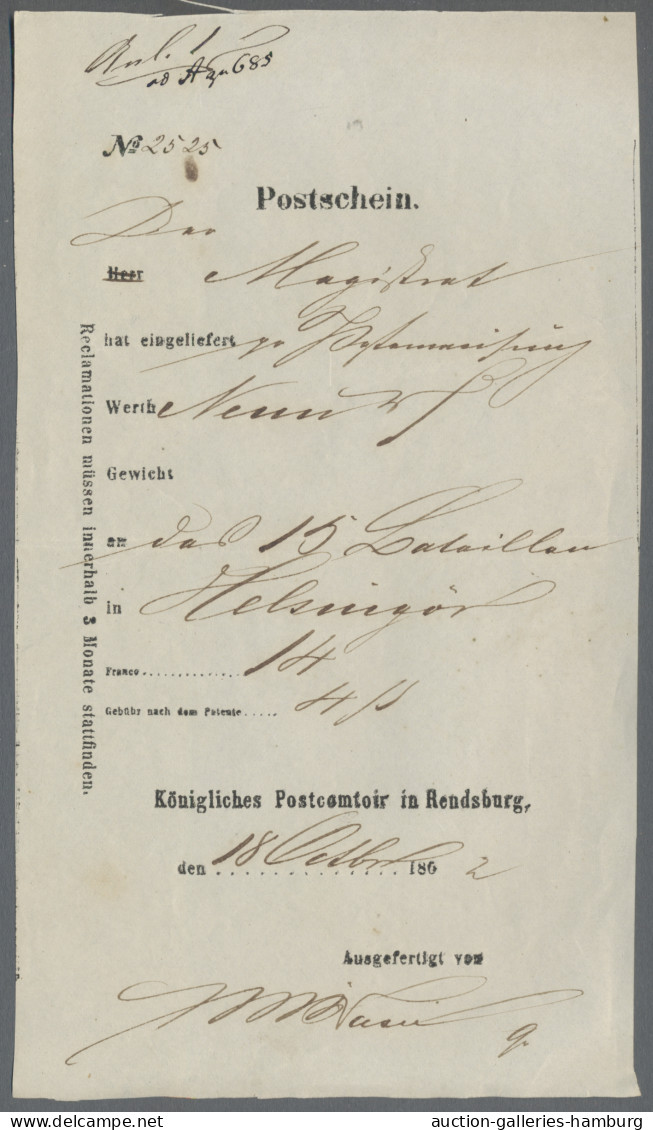 Anl. 1
ad A 685
No 2525
Postschein.
Der
Herr Magistrat
hat eingeliefert pr Postanweisung
Werth Neun
Gewicht
an das 15 Bataillon
in Helsingör
Franco........... 14
Gebühr nach dem Patente..... 4 ß
Reclamationen müssen innerhalb 3 Monate stattfinden.
Königliches Postcomtoir in Rendsburg,
den 18 Octbr 1862
Ausgefertigt von
auction-galleries-hamburg